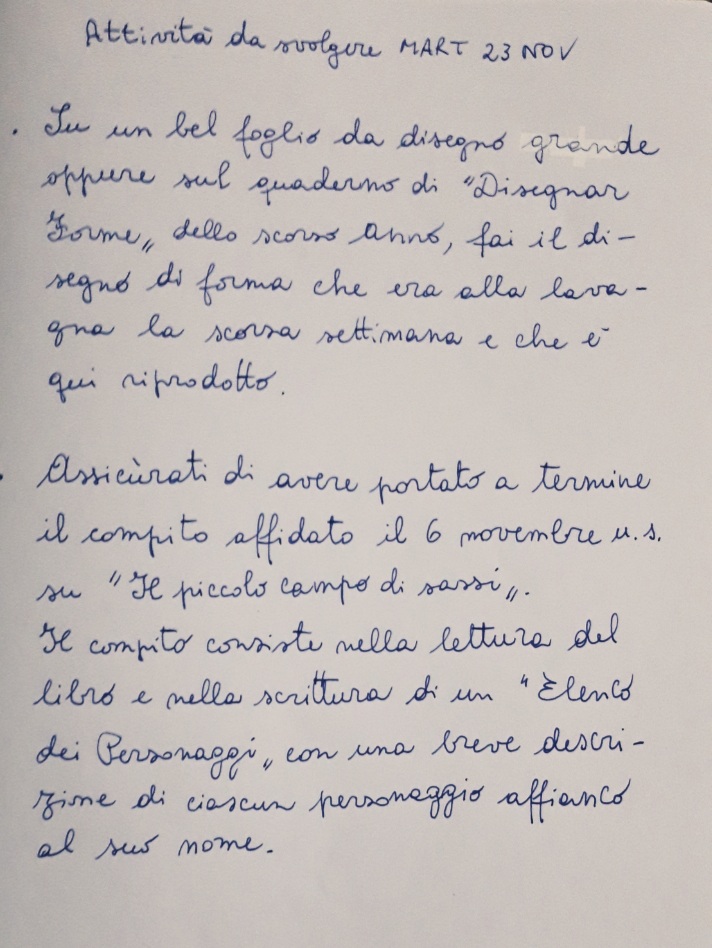 Attività da svolgere MART 23 NOV
. Su un bel foglio da disegno grande
oppure sul quaderno di "Disegnar
Forme„ dello scorso anno, fai il di-
segno di forma che era alla lava-
gna la scorsa settimana e che è
qui riprodotto.
. Assicùrati di avere portato a termine
il compito affidato il 6 novembre u.s.
su "Il piccolo campo di sassi„.
Il compito consiste nella lettura del
libro e nella scrittura di un "Elenco
dei Personaggi„ con una breve descri-
zione di ciascun personaggio affianco
al suo nome.